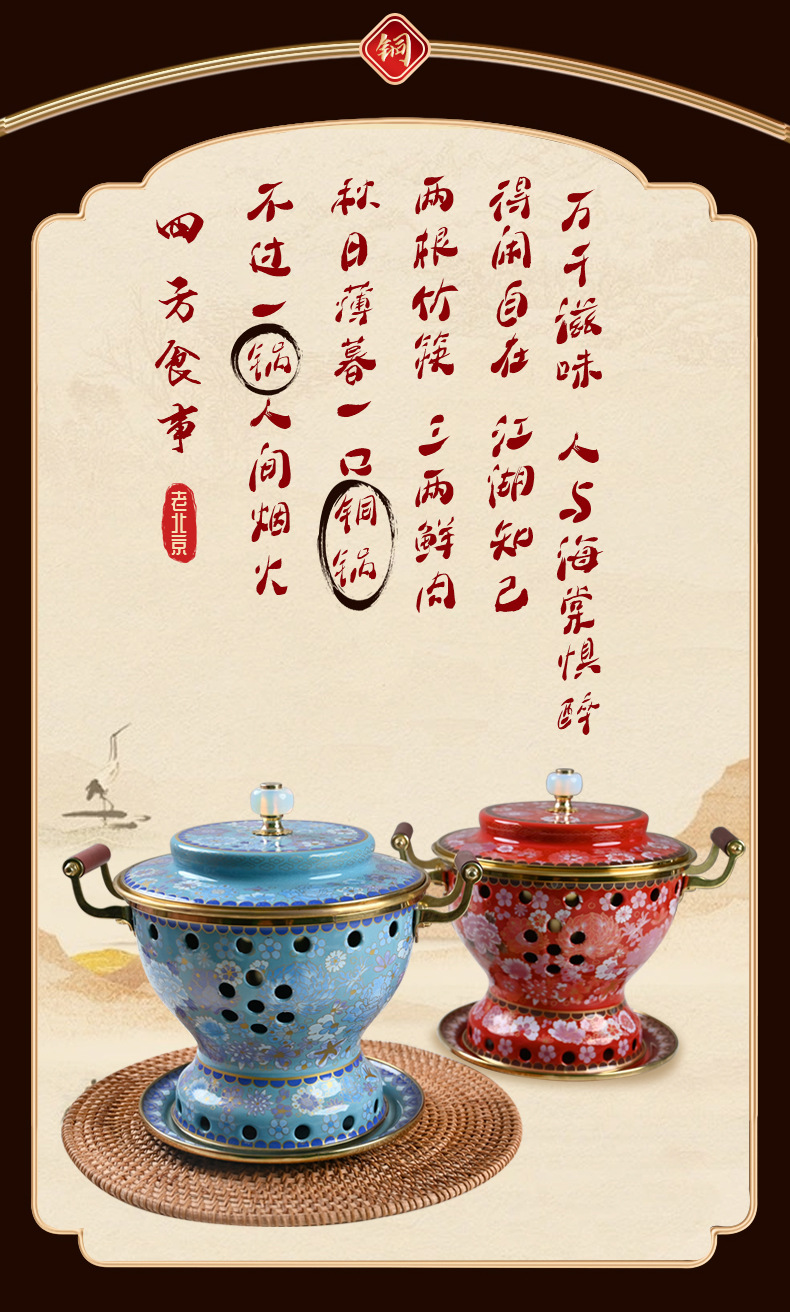 铜
四方食事
老北京
不过一锅人间烟火
秋日薄暮一口铜锅
两根竹筷 三两鲜肉
得闲自在 江湖知己
万千滋味 人与海棠惧醉